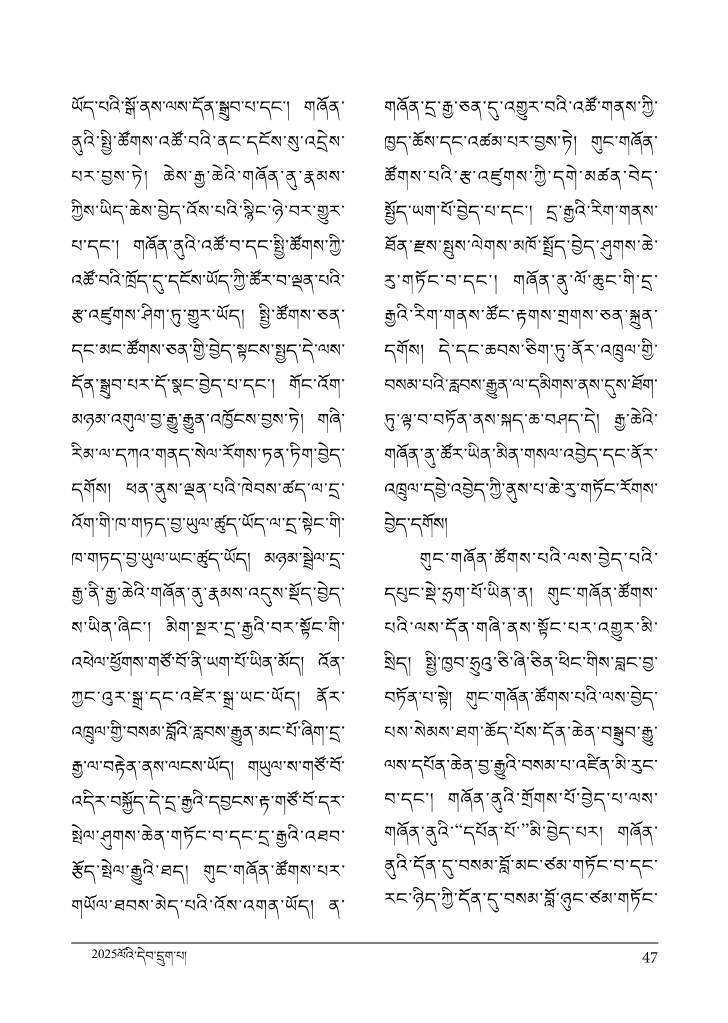 ཡོད་པའི་སྒོ་ནས་ལས་དོན་སྒྲུབ་པ་དང་། གཞོན་
ནུའི་སྤྱི་ཚོགས་འཚོ་བའི་ནང་དངོས་སུ་འདྲེས་
པར་བྱས་ཏེ། ཆེས་རྒྱ་ཆེའི་གཞོན་ནུ་རྣམས་
ཀྱིས་ཡིད་ཆེས་བྱེད་འོས་པའི་སྙིང་ཉེ་བར་གྱུར་
པ་དང་། གཞོན་ནུའི་འཚོ་བ་དང་སྤྱི་ཚོགས་ཀྱི་
འཚོ་བའི་ཁྲོད་དུ་དངོས་ཡོད་ཀྱི་ཚོར་བ་ལྡན་པའི་
རྩ་འཛུགས་ཤིག་ཏུ་གྱུར་ཡོད། སྤྱི་ཚོགས་ཅན་
དང་མང་ཚོགས་ཅན་གྱི་བྱེད་སྟངས་སྤྱད་དེ་ལས་
དོན་སྒྲུབ་པར་དོ་སྣང་བྱེད་པ་དང་། གོང་འོག་
མཉམ་འགུལ་བྱ་རྒྱུ་རྒྱུན་འཁྱོངས་བྱས་ཏེ། གཞི་
རིམ་ལ་དཀའ་གནད་སེལ་རོགས་ཏན་ཏིག་བྱེད་
དགོས། ཕན་ནུས་ལྡན་པའི་ཁེབས་ཚད་ལ་དྲ་
འོག་གི་ཁ་གཏད་བྱ་ཡུལ་ཚུད་ཡོད་ལ་དྲ་སྟེང་གི་
ཁ་གཏད་བྱ་ཡུལ་ཡང་ཚུད་ཡོད། མཉམ་སྦྲེལ་དྲ་
རྒྱ་ནི་རྒྱ་ཆེའི་གཞོན་ནུ་རྣམས་འདུས་སྡོད་བྱེད་
ས་ཡིན་ཞིང་། མིག་སྔར་དྲ་རྒྱའི་བར་སྟོང་གི་
འཕེལ་ཕྱོགས་གཙོ་བོ་ནི་ཡག་པོ་ཡིན་མོད། འོན་
ཀྱང་འུར་སྒྲ་དང་འཛེར་སྒྲ་ཡང་ཡོད། ནོར་
འཁྲུལ་གྱི་བསམ་བློའི་རླབས་རྒྱུན་མང་པོ་ཞིག་དྲ་
རྒྱ་ལ་བརྟེན་ནས་ལངས་ཡོད། གཡུལ་ས་གཙོ་བོ་
འདིར་བསྐྱོད་དེ་དྲ་རྒྱའི་དབྱངས་རྟ་གཙོ་བོ་དར་
སྤེལ་ཤུགས་ཆེན་གཏོང་བ་དང་དྲ་རྒྱའི་འཐབ་
རྩོད་སྤེལ་རྒྱུའི་ཐད། གུང་གཞོན་ཚོགས་པར་
གཡོལ་ཐབས་མེད་པའི་འོས་འགན་ཡོད། ན་
གཞོན་དྲ་རྒྱ་ཅན་དུ་འགྱུར་བའི་འཚོ་གནས་ཀྱི་
ཁྱད་ཆོས་དང་འཚམ་པར་བྱས་ཏེ། གུང་གཞོན་
ཚོགས་པའི་རྩ་འཛུགས་ཀྱི་དགེ་མཚན་བེད་
སྤྱོད་ཡག་པོ་བྱེད་པ་དང་། དྲ་རྒྱའི་རིག་གནས་
ཐོན་རྫས་སྤུས་ལེགས་མཁོ་སྤྲོད་བྱེད་ཤུགས་ཆེ་
རུ་གཏོང་བ་དང་། གཞོན་ནུ་ལོ་ཆུང་གི་དྲ་
རྒྱའི་རིག་གནས་ཚོང་རྟགས་གྲགས་ཅན་སྐྲུན་
དགོས། དེ་དང་ཆབས་ཅིག་ཏུ་ནོར་འཁྲུལ་གྱི་
བསམ་པའི་རླབས་རྒྱུན་ལ་དམིགས་ནས་དུས་ཐོག་
ཏུ་ལྟ་བ་བཏོན་ནས་སྐད་ཆ་བཤད་དེ། རྒྱ་ཆེའི་
གཞོན་ནུ་ཚོར་ཡིན་མིན་གསལ་འབྱེད་དང་ནོར་
འཁྲུལ་དབྱེ་འབྱེད་ཀྱི་ནུས་པ་ཆེ་རུ་གཏོང་རོགས་
བྱེད་དགོས།
གུང་གཞོན་ཚོགས་པའི་ལས་བྱེད་པའི་
དཔུང་སྡེ་ཧྲག་པོ་ཡིན་ན། གུང་གཞོན་ཚོགས་
པའི་ལས་དོན་གཞི་ནས་སྟོང་པར་འགྱུར་མི་
སྲིད། སྤྱི་ཁྱབ་ཧྲུའུ་ཅི་ཞི་ཅིན་ཕིང་གིས་བླང་བྱ་
བཏོན་པ་སྟེ། གུང་གཞོན་ཚོགས་པའི་ལས་བྱེད་
པས་སེམས་ཐག་ཆོད་པོས་དོན་ཆེན་བསྒྲུབ་རྒྱུ་
ལས་དཔོན་ཆེན་བྱ་རྒྱུའི་བསམ་པ་འཛིན་མི་རུང་
བ་དང་། གཞོན་ནུའི་གྲོགས་པོ་བྱེད་པ་ལས་
གཞོན་ནུའི་“དཔོན་པོ་”མི་བྱེད་པར། གཞོན་
ནུའི་དོན་དུ་བསམ་བློ་མང་ཙམ་གཏོང་བ་དང་
རང་ཉིད་ཀྱི་དོན་དུ་བསམ་བློ་ཉུང་ཙམ་གཏོང་
2025ལོའི་དེབ་དྲུག་པ།
47